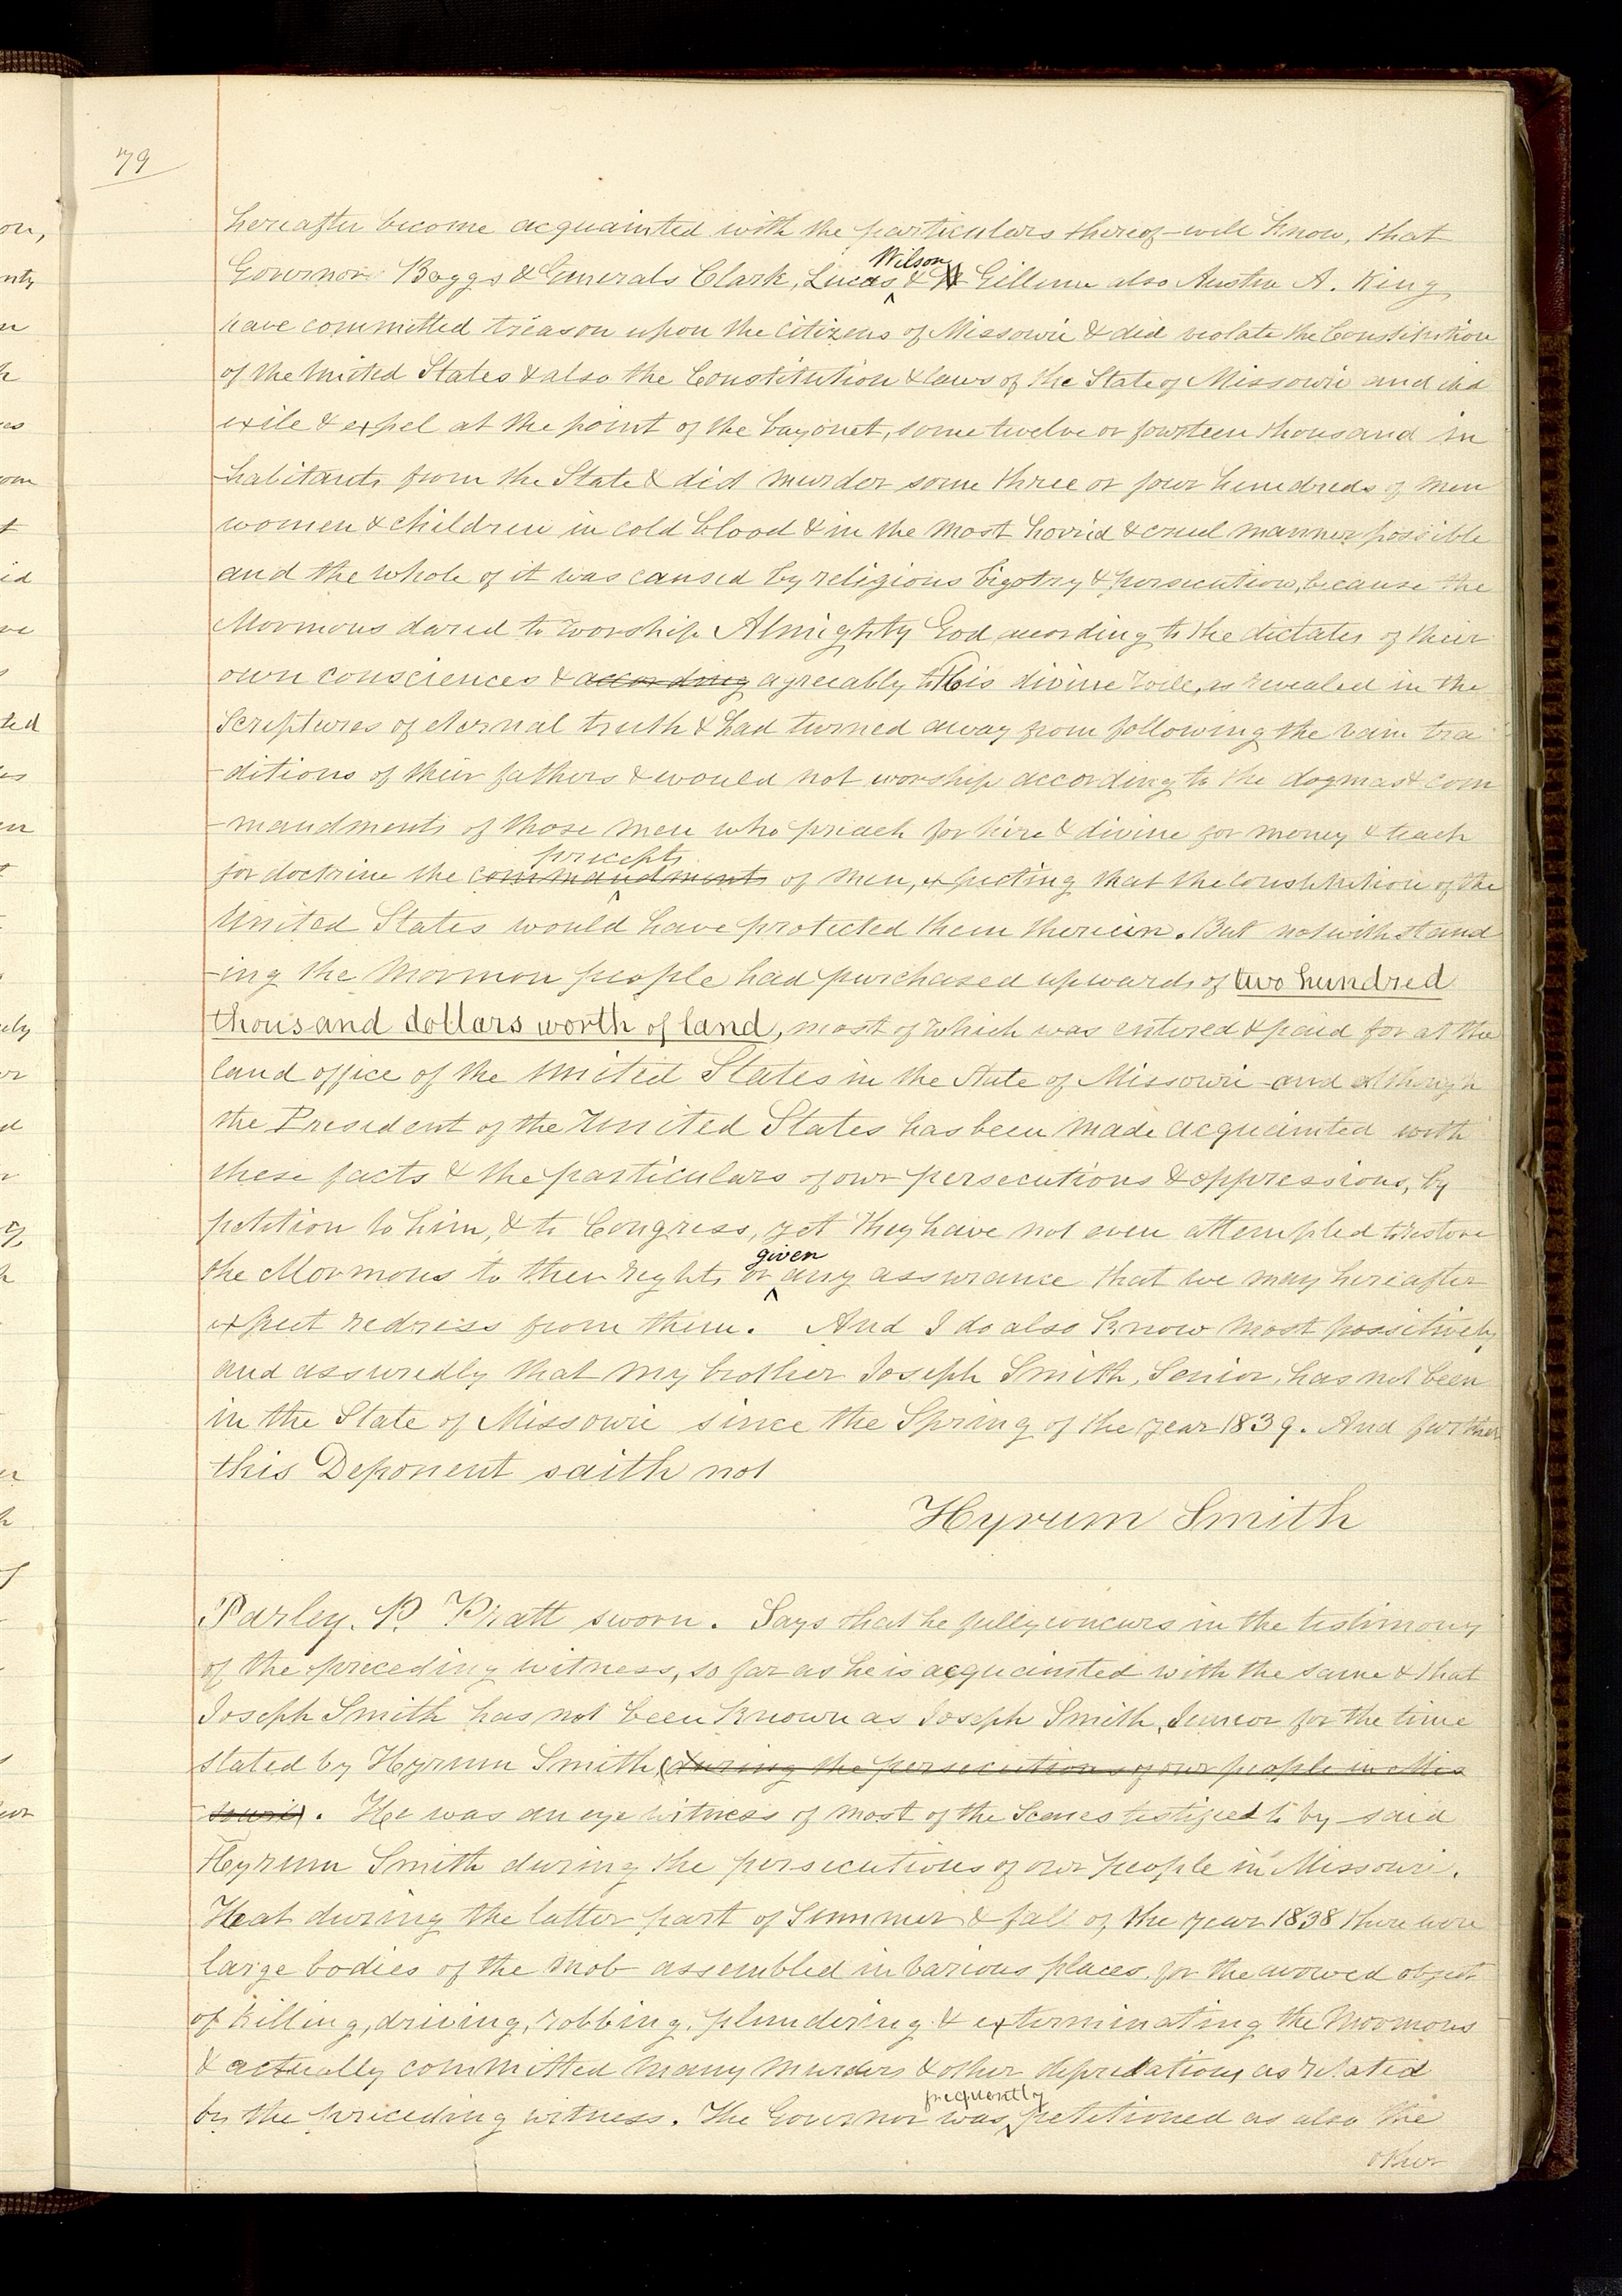 79
hereafter become acquainted with the particulars thereof will know, that
Governor Boggs & Generals Clark, Lucas Wilson & Gillum also Austin A. King
have committed treason upon the citizens of Missouri & did violate the Constitution
of the United States & also the Constitution & laws of the State of Missouri and did
exile & expel at the point of the bayonet, some twelve or fourteen thousand in
-habitants from the State & did murder some three or four hundreds of men
women & children in cold blood & in the most horrid & cruel manner possible
and the whole of it was caused by religious bigotry & persecution, because the
Mormons dared to worship Almighty God acording to the dictates of their
own consciences & according agreeably to His divine will, as revealed in the
Scriptures of eternal truth & had turned away from following the vain tra
-ditions of their fathers & would not worship according to the dogmas & com
-mandments of those men who preach for hire & divine for money & teach
for doctrine the commandments precepts of men, expecting that the Constitution of the
United States would have protected them therein. But notwithstand
-ing the Mormon people had purchased upwards of two hundred
thousand dollars worth of land, most of which was entered & paid for at the
land office of the United States in the State of Missouri and although
the President of the United States has been made acquainted with
these facts & the particulars of our persecutions & oppressions, by
petition to him, & to Congress, yet they have not even attempted to restore
the Mormons to their rights or given any assurance that we may hereafter
expect redress from them. And I do also know most possitively
and assuredly that my brother Joseph Smith, Senior, has not been
in the State of Missouri since the Spring of the year 1839. And further
this Deponent saith not
Hyrum Smith
Parley. P. Pratt sworn. Says that he fully concurs in the testimony
of the preceding witness, so far as he is acquainted with the same & that
Joseph Smith has not been known as Joseph Smith, Junior for the time
stated by Hyrum Smith (during the persecutions of our people in Mis
souri). He was an eye witness of most of the Scenes testified to by said
Hyrum Smith during the persecutions of our people in Missouri.
That during the latter part of Summer & fall of the year 1838 there were
large bodies of the mob assembled in various places for the avowed object
of killing, driving, robbing, plundering & exterminating the Mormons
& actually committed many murders & other depredations as related
by the preceding witness. The Governor was frequently petitioned as also the
other